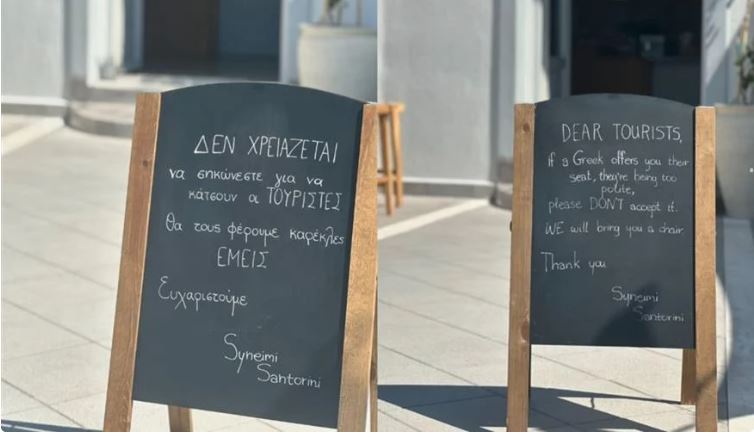 ΔΕΝ ΧΡΕΙΑΖΕΤΑΙ
να σηκώνεστε για να
κάτσουν οι ΤΟΥΡΙΣΤΕΣ
Θα τους φέρουμε καρέκλες
ΕΜΕΙΣ
Ευχαριστούμε
Syneimi
Santorini
DEAR TOURISTS,
if a Greek offers you their
seat, they're being too
polite,
please DON'T accept it.
WE will bring you a chair
Thank you
Syneimi
Santorini